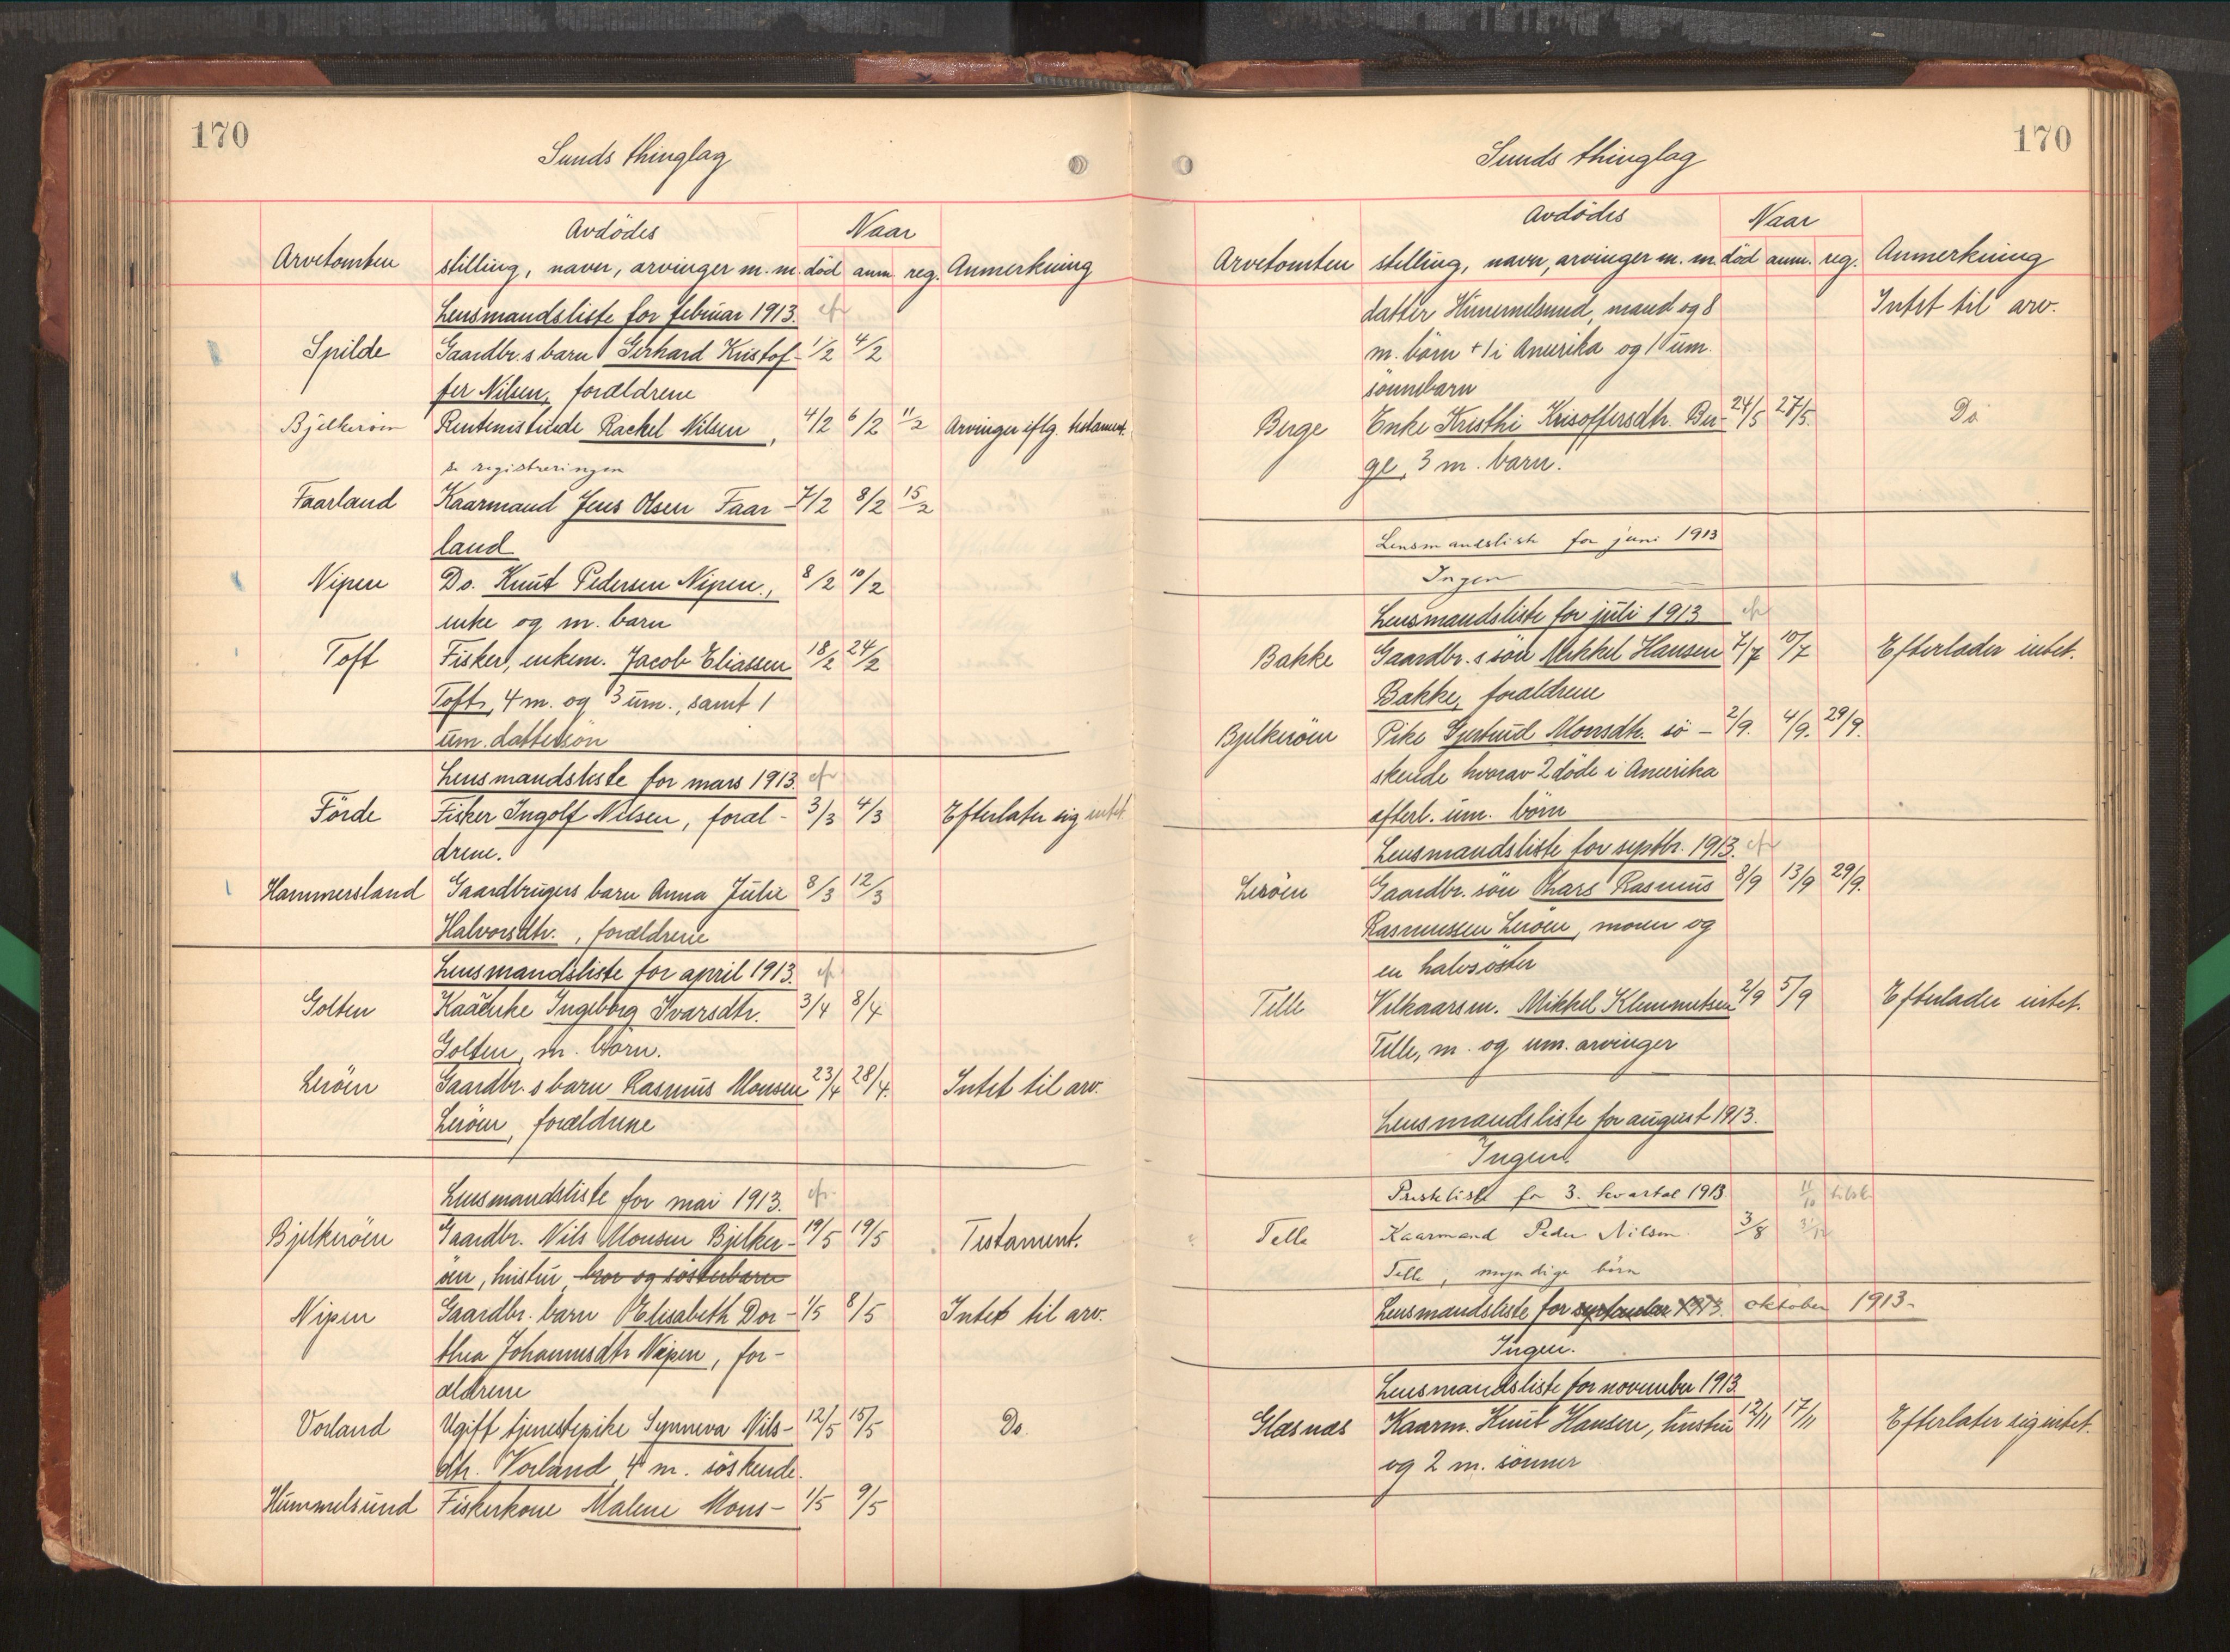 170
Sunds thinglag
Avdödes
Naar
Arvetomten stilling, navn, arvinger m. m. död anm. reg. Anmerkning
Lensmandsliste for februar 1913. cfr
Spilde Gaardbr.s barn Gerhard Kristof- 1/2 4/2
fer Nilsen, forældrene
Bjelkeröen Rentenistinde Rachel Nilsen, 4/2 6/2 11/2 Arvinger iflg. testament.
se registreringen
Faarland Kaarmand Jens Olsen Faar- 7/2 8/2 15/2
land
Nipen Do. Knut Pedersen Nipen, 8/2 10/2
enke og m. barn
Toft Fisker, enkem. Jacob Eliassen 18/2 24/2
Toft, 4 m. og 3 um., samt 1
um. dattersön
Lensmandsliste for mars 1913. cfr
Förde Fisker Ingolf Nilsen, foræl- 3/3 4/3 Efterlater sig intet
drene.
Hammersland Gaardbrugers barn Anna Julie 8/3 12/3
Halvorsdtr., forældrene
Lensmandsliste for april 1913. cfr
Golten Kaarenke Ingeborg Ivarsdtr. 3/4 8/4
Golten, m. börn.
Leröen Gaardbr.s barn Rasmus Monsen 23/4 28/4. Intet til arv.
Leröen, forældrene
Lensmandsliste for mai 1913. cfr.
Bjelkeröen Gaardbr. Nils Monsen Bjelker- 19/5 19/5 Testament.
öen, hustru, bror og sösterbarn
Nipen Gaardbr. barn Elisabeth Dor- 1/5 8/5 Intet til arv.
thea Johannesdtr Nipen, for-
ældrene
Vorland Ugift tjenestepike Synneva Nils- 12/5 15/5 Do
dtr. Vorland, 4 m. söskende.
Hummelsund Fiskerkone Malene Mons- 1/5 9/5
170
Sunds thinglag
Avdödes
Naar
Arvetomten stilling, navn, arvinger m. m. död anm. reg. Anmerkning
datter Hummelsund, mand og 8 Intet til arv.
m. börn + 1 i Amerika og 1 um.
sönnebarn
Berge Enke Kristhi Krisoffersdtr. Ber- 24/5 27/5. Do
ge, 3 m. barn.
Lensmandsliste for juni 1913
Ingen
Lensmandsliste for juli 1913 cfr
Bakke Gaardbr.s sön Mikkel Hansen 7/7 10/7 Efterlader intet.
Bakke, forældrene
Bjelkeröen Pike Gjertrud Monsdtr. sö- 2/9. 4/9. 29/9.
skende hvorav 2 döde i Amerika
efterl. um. börn
Lensmandsliste for septbr. 1913. cfr
Leröen Gaardbr. sön Lars Rasmus 8/9 13/9 29/9.
Rasmussen Leröen, moren og
en halvsöster
Telle Vilkaarsm. Mikkel Klemmetsen 2/9 5/9 Efterlader intet.
Telle, m. og um. arvinger
Lensmandsliste for august 1913.
Ingen.
Presteliste for 3. kvartal 1913 11/10 tilsk
Telle Kaarmand Peder Nilsen 3/8
Telle, myndige börn
Lensmandsliste for september 1913. oktober 1913.
Ingen.
Lensmandsliste for november 1913.
Glæsnæs Kaarm. Knut Hansen, hustru 12/11 17/11 Efterlater sig intet.
og 2 m. sönner